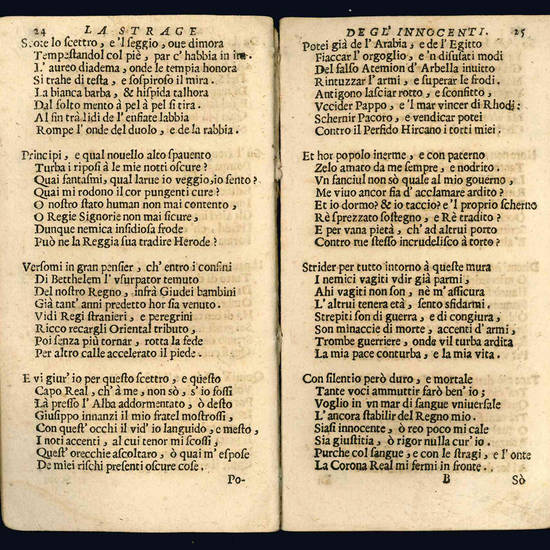 24 LA STRAGE
Scote lo scettro, e 'l seggio, oue dimora
Tempestandol col piè, par c' habbia in ira.
L' aureo diadema, onde le tempia honora
Si trahe di testa, e sospiroso il mira.
La bianca barba, & hispida talhora
Dal solto mento à pel à pel si tira.
Al fin trà lidi de l' enfiate labbia
Rompe l' onde del duolo, e de la rabbia.
Principi, e qual nouello alto spauento
Turba i riposi à le mie notti oscure?
Quai fantasmi, quai larue io veggio, io sento?
Quai mi rodono il cor pungenti cure?
O nostro stato human non mai contento,
O Regie Signorie non mai sicure,
Dunque nemica insidiosa frode
Può ne la Reggia sua tradire Herode?
Versomi in gran pensier, ch' entro i confini
Di Betthelem l' vsurpator temuto
Del nostro Regno, infrà Giudei bambini
Già tant' anni predetto hor sia venuto.
Vidi Regi stranieri, e peregrini
Ricco recargli Oriental tributo,
Poi senza più tornar, rotta la fede
Per altro calle accelerato il piede.
E vi giur' io per questo scettro, e questo
Capo Real, ch' à me, non sò, s' io fossi
Là presso l' Alba addormentato, ò desto
Giuseppo innanzi il mio fratel mostrossi,
Con quest' occhi il vid' io languido, e mesto,
I noti accenti, al cui tenor mi scossi,
Quest' orecchie ascoltaro, ò quai m' espose
De miei rischi presenti oscure cose.
Po-
DEGL' INNOCENTI. 25
Potei già de l' Arabia, e de l' Egitto
Fiaccar l' orgoglio, e 'n disusati modi
Del falso Atemion d' Arbella inuitto
Rintuzzar l' armi, e superar le frodi.
Antigono lasciar rotto, e sconfitto,
Vccider Pappo, e 'l mar vincer di Rhodi:
Schernir Pacoro, e vendicar potei
Contro il Perfido Hircano i torti miei.
Et hor popolo inerme, e con paterno
Zelo amato da me sempre, e nodrito.
Vn fanciul non sò quale al mio gouerno,
Me viuo ancor fia d' acclamare ardito?
Et io dormo? & io taccio? e 'l proprio scherno
Rè sprezzato sostegno, e Rè tradito?
E per vana pietà, ch' ad altrui porto
Contro me stesso incrudelisco à torto?
Strider per tutto intorno à queste mura
I nemici vagiti vdir già parmi,
Ahi vagiti non son, nè m' assicura
L' altrui tenera età, sento sfidarmi.
Strepiti son di guerra, e di congiura,
Son minaccie di morte, accenti d' armi,
Trombe guerriere, onde vil turba ardita
La mia pace conturba, e la mia vita.
Con silentio però duro, e mortale
Tante voci ammuttir farò ben' io;
Voglio in vn mar di sangue vniuersale
L' ancora stabilir del Regno mio.
Siasi innocente, ò reo poco mi cale
Sia giustitia, ò rigor nulla cur' io.
Purche col sangue, e con le stragi, e l' onte
La Corona Real mi fermi in fronte.
B Sò